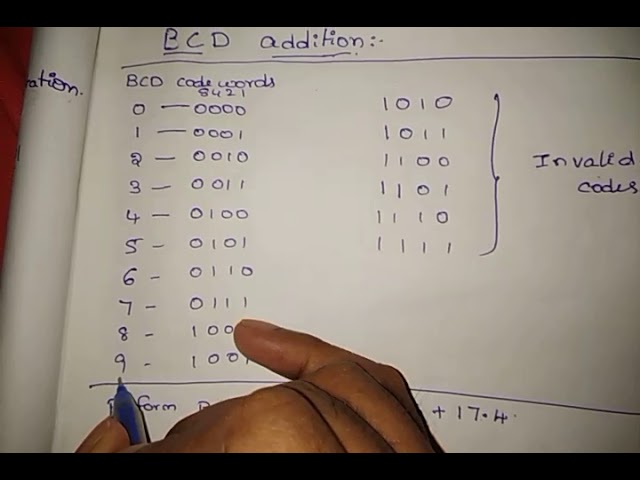 BCD addition:-
ration.
BCD code words
8421
0 — 0000
1 — 0001
2 — 0010
3 — 0011
4 — 0100
5 - 0101
6 - 0110
7 - 0111
8 - 100
9 - 1001
1010
1011
1100
1101
1110
1111
Invalid
codes
+ 17.4